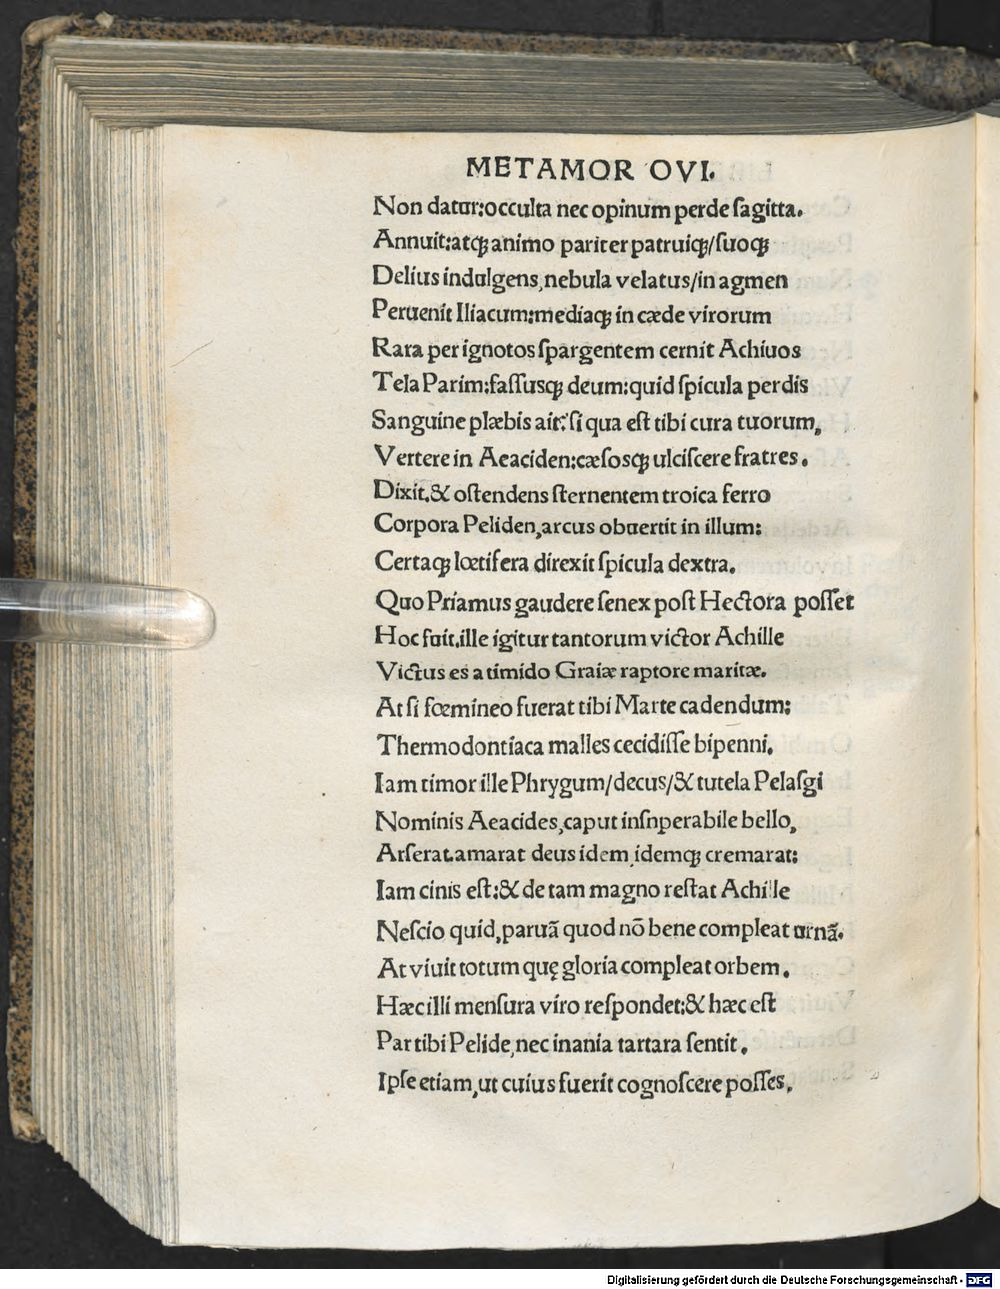 METAMOR OVI.
Non datur:occulta nec opinum perde ſagitta.
Annuit:atqꝫ animo pariter patruiqꝫ/ſuoqꝫ
Delius indulgens,nebula velatus/in agmen
Peruenit Iliacum:mediaqꝫ in cæde virorum
Rara per ignotos ſpargentem cernit Achiuos
Tela Parim:faſſusqꝫ deum:quid ſpicula perdis
Sanguine plæbis ait:ſi qua eſt tibi cura tuorum,
Vertere in Aeaciden:cæſosqꝫ ulciſcere fratres.
Dixit.& oſtendens ſternentem troica ferro
Corpora Peliden,arcus obuertit in illum:
Certaqꝫ lœtifera direxit ſpicula dextra.
Quo Priamus gaudere ſenex poſt Hectora poſſet
Hoc fuit.ille igitur tantorum victor Achille
Victus es a timido Graiæ raptore maritæ.
At ſi fœmineo fuerat tibi Marte cadendum:
Thermodontiaca malles cecidiſſe bipenni.
Iam timor ille Phrygum/decus/& tutela Pelaſgi
Nominis Aeacides,caput inſnperabile bello,
Arſerat.amarat deus idem,idemqꝫ cremarat:
Iam cinis eſt:& de tam magno reſtat Achille
Neſcio quid,paruã quod nõ bene compleat urnã.
At viuit totum quę gloria compleat orbem.
Hæc illi menſura viro reſpondet:& hæc eſt
Par tibi Pelide,nec inania tartara ſentit.
Ipſe etiam,ut cuius fuerit cognoſcere poſſes,
Digitalisierung gefördert durch die Deutsche Forschungsgemeinschaft - DFG